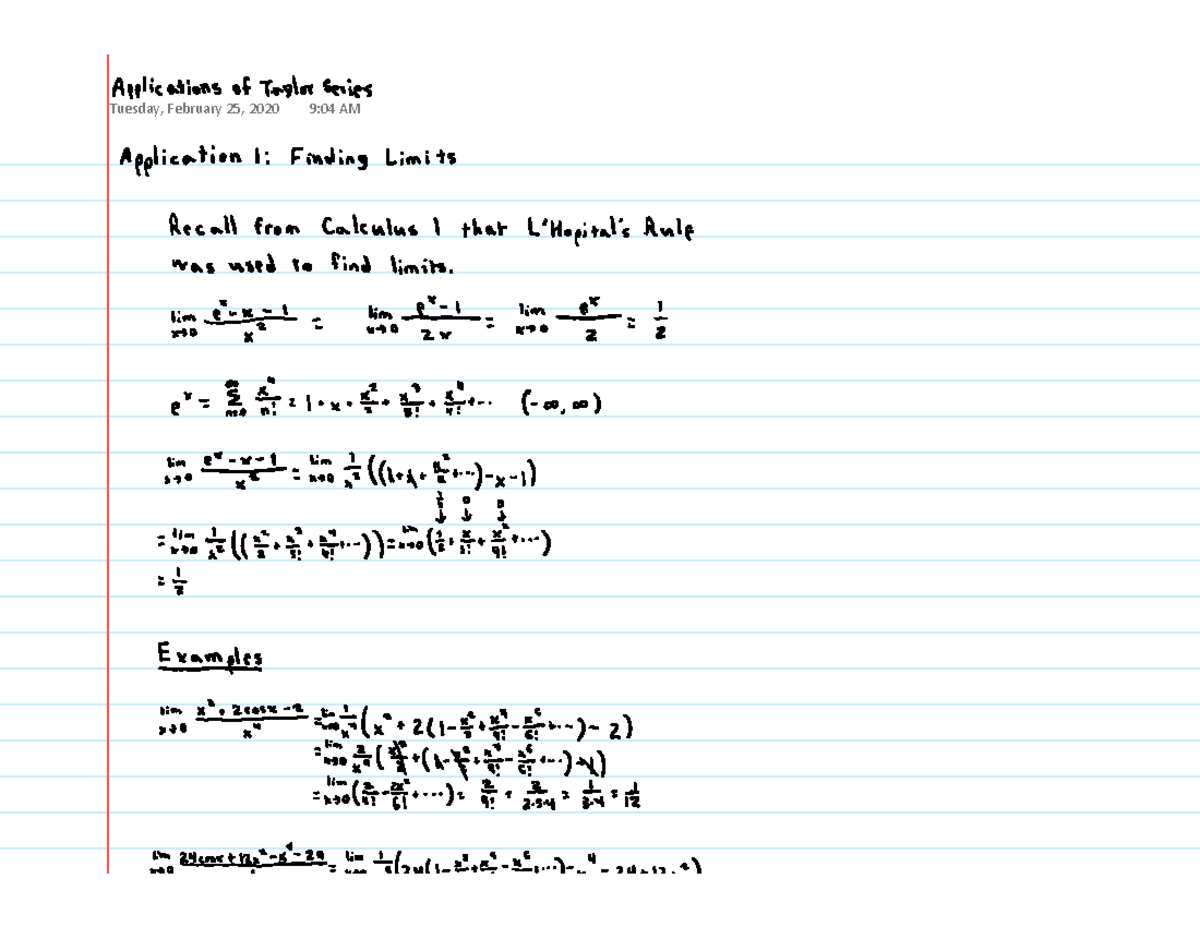 Applications of Taylor Series
Tuesday, February 25, 2020 9:04 AM
Application 1: Finding Limits
Recall from Calculus 1 that L'Hopital's Rule
was used to find limits.
lim x→0 (e^x - x - 1)/x^2 = lim x→0 (e^x - 1)/(2x) = lim x→0 e^x/2 = 1/2
e^x = ∑ n=0 ∞ x^n/n! = 1 + x + x^2/2 + x^3/3! + x^4/4! + ... (-∞, ∞)
lim x→0 (e^x - x - 1)/x^2 = lim x→0 1/x^2 ((1 + x + x^2/2 + ...) - x - 1)
1/2 0 0
↓ ↓ ↓
= lim x→0 1/x^2 ((x^2/2 + x^3/3! + x^4/4! + ...)) = lim x→0 (1/2 + x/3! + x^2/4! + ...)
= 1/2
Examples
lim x→0 (x^2 + 2cosx - 2)/x^4 = lim x→0 1/x^4 (x^2 + 2(1 - x^2/2 + x^4/4! - x^6/6! + ...) - 2)
= lim x→0 2/x^4 (x^2/2 + (1 - x^2/2 + x^4/4! - x^6/6! + ...) - 1)
= lim x→0 (2/4! - 2x^2/6! + ...) = 2/4! = 2/(2·3·4) = 1/(3·4) = 1/12
lim x→0 24cosx + 12x^2 - x^4 - 24 = lim 1/ (24(1 - x^2/2 + x^4/4! - x^6/6! + ...) - x^4 - 24 + 12x^2)